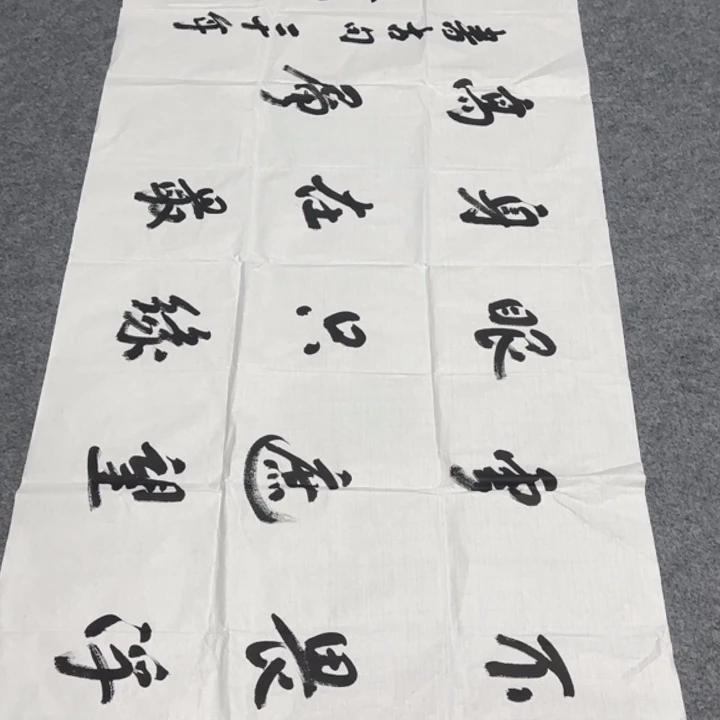 不畏浮
雲遮望
眼只缘
身在最
高層
書古句二十年